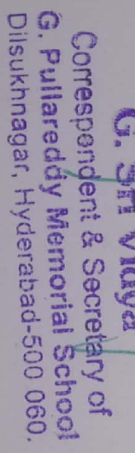 G. Sri Vidya
Correspondent & Secretary of
G. Pullareddy Memorial School
Dilsukhnagar, Hyderabad-500 060.